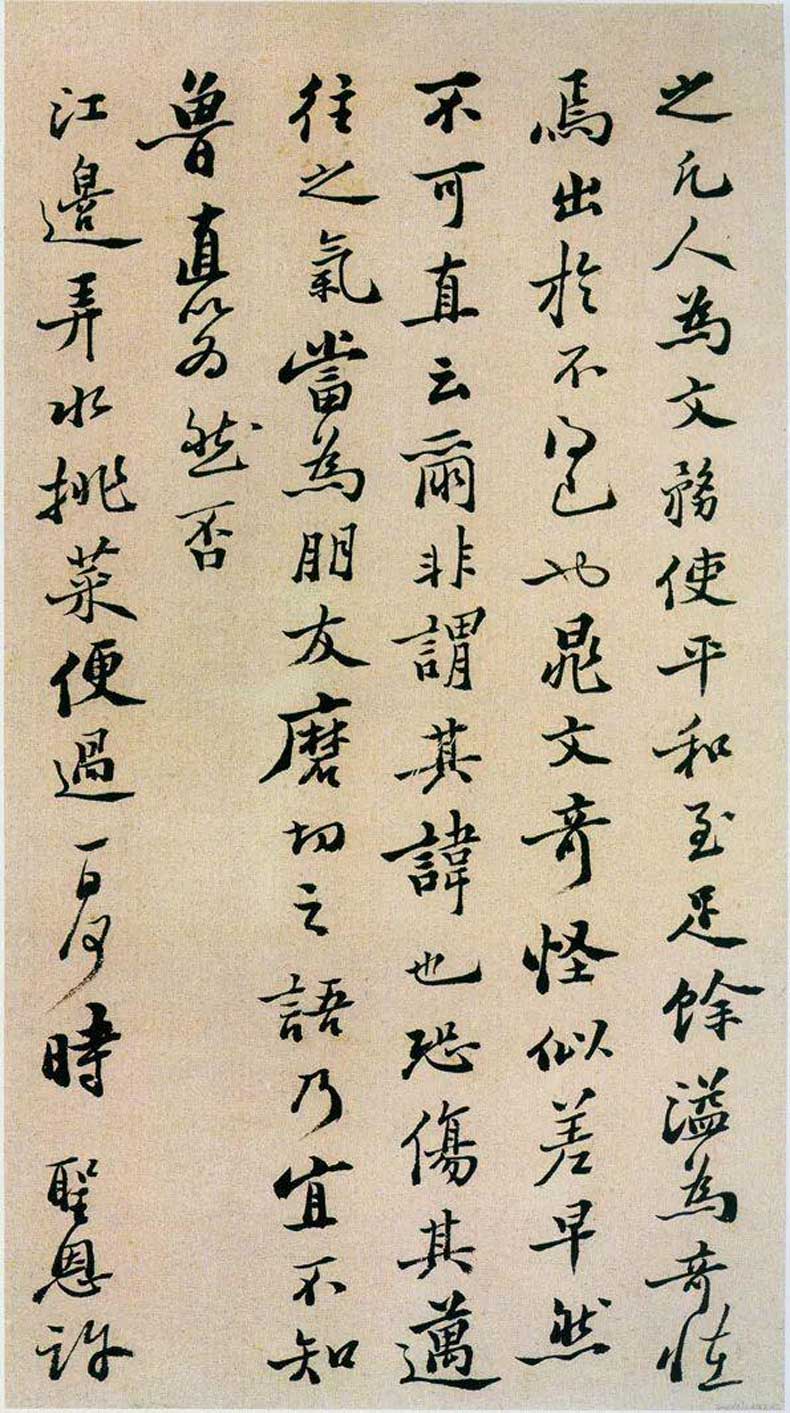 之凡人為文務使平和至足餘溢為奇恠
焉出於不得已也晁文奇怪似差早然
不可直云爾非謂其諱也恐傷其邁
往之氣當為朋友磨切之語乃宜不知
魯直以為然否
江邊弄水挑菜便過一日何時 聖恩許